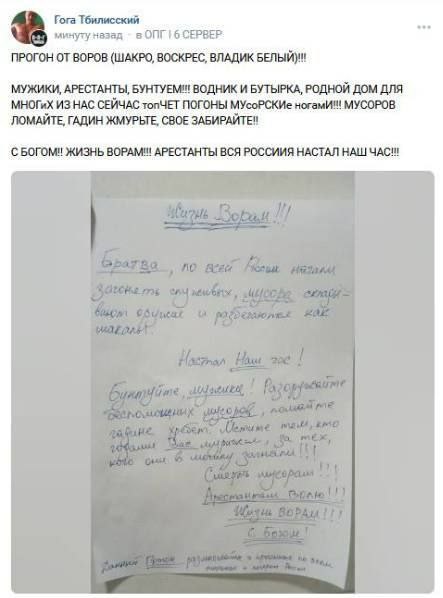 Гога Тбилисский
минуту назад · в ОПГ | 6 СЕРВЕР
ПРОГОН ОТ ВОРОВ (ШАКРО, ВОСКРЕС, ВЛАДИК БЕЛЫЙ)!!!
МУЖИКИ, АРЕСТАНТЫ, БУНТУЕМ!!! ВОДНИК И БУТЫРКА, РОДНОЙ ДОМ ДЛЯ
МНОГиХ ИЗ НАС СЕЙЧАС топЧЕТ ПОГОНЫ МУсоРСКИе ногамИ!!! МУСОРОВ
ЛОМАЙТЕ, ГАДИН ЖМУРЬТЕ, СВОЕ ЗАБИРАЙТЕ!!
С БОГОМ!! ЖИЗНЬ ВОРАМ!!! АРЕСТАНТЫ ВСЯ РОССИИЯ НАСТАЛ НАШ ЧАС!!!
Жизнь Ворам!!!
Братва, по всей России начали
загонять служивых, мусора склады-
вают оружие и разбегаются как
шакалы.
Настал Наш час!
Бунтуйте, мужики! Разоружайте
беспомощних мусоров, ломайте
гадине хребет. Мстите тем, кто
годами Вас, за тех,
кого они в могилу загнали!!!
Смерть мусорам!!!
Арестантам Волю!!!
Жизнь ВОРАМ!!!
С Богом!
Данный Прогон по всем
и лагерям России